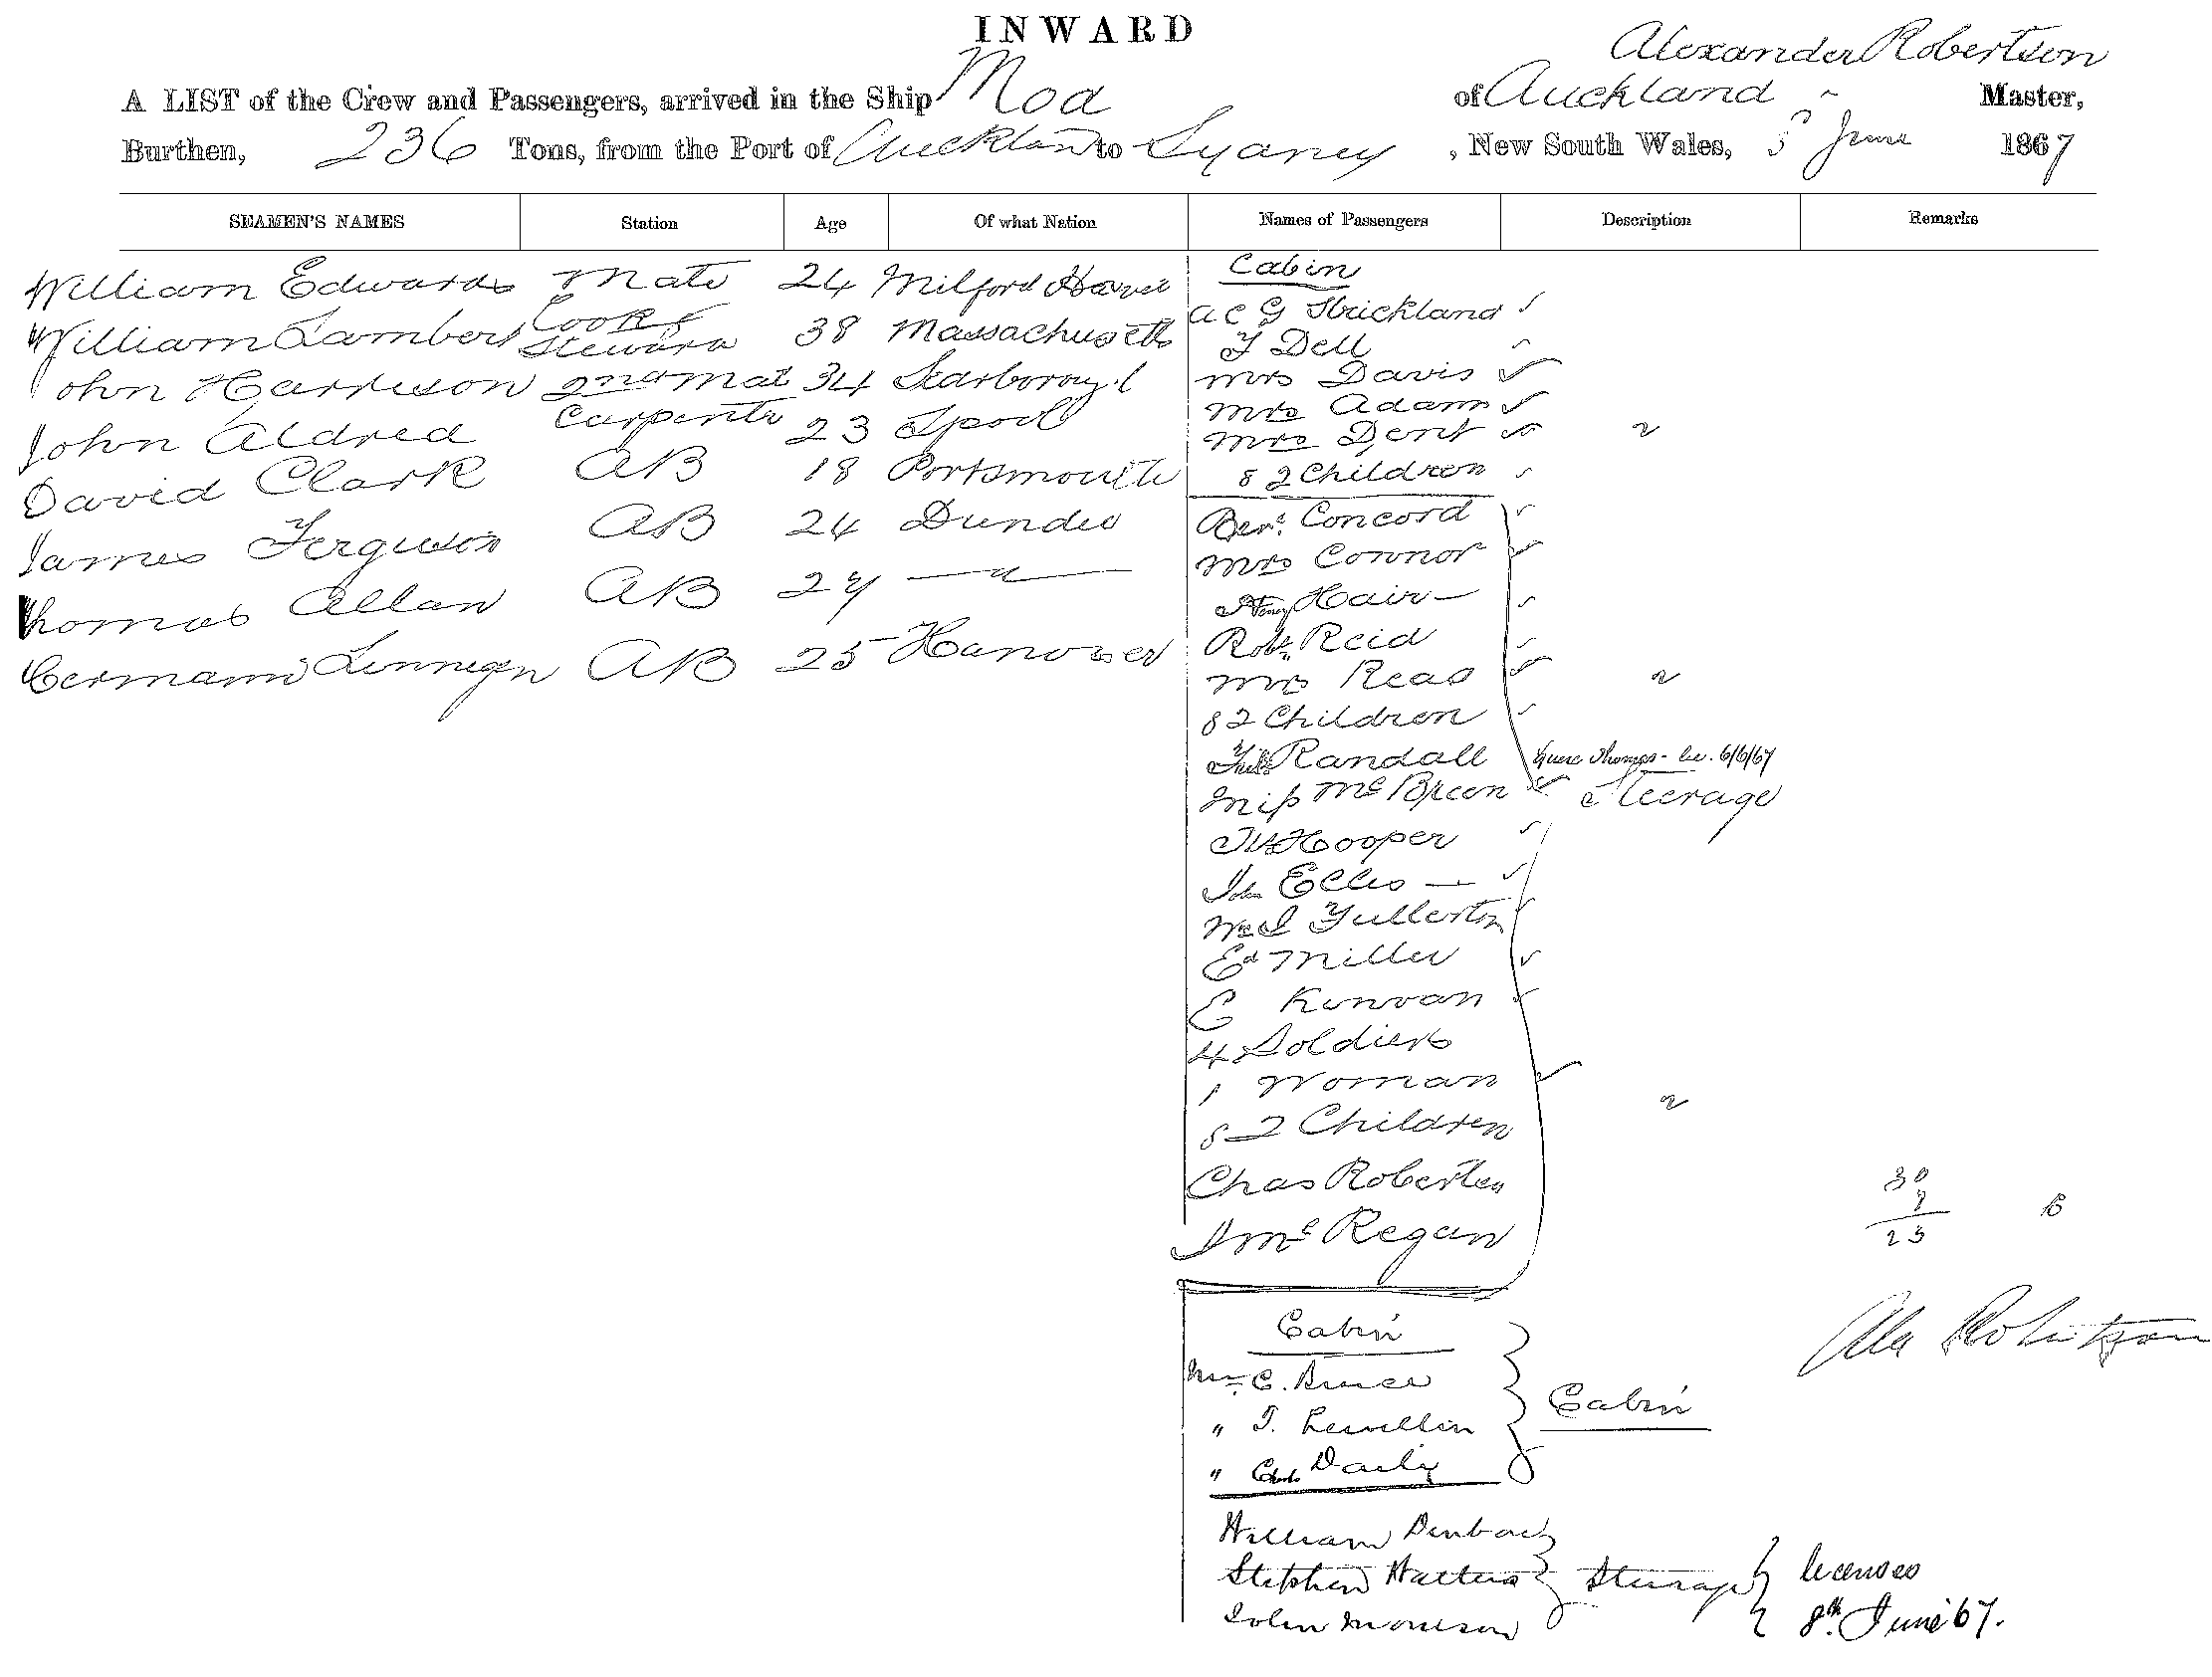 INWARD
Alexander Robertson
A LIST of the Crew and Passengers, arrived in the Ship Moa of Auckland Master,
Burthen, 236 Tons, from the Port of Auckland to Sydney, New South Wales, 5 June 1867
SEAMEN'S NAMES Station Age Of what Nation Names of Passengers Description Remarks
Cabin
William Edwards Mate 24 Milford Haven
A C G Strickland
William Lambert Cook & Steward 38 Massachusetts
Dell
John Harrison 2nd Mat 34
Mrs Davis
Mrs Adam
John Aldred Carpentr 23 Lpool
Mrs Dent
David Clark AB 18 Portsmouth
& 2 Children
James Ferguson AB 24 Dundee
Concord
Mrs Connor
Thomas Allan AB 24 — " —
Henry Hair
Robt Reid
AB 25 Hanover
Mrs Read
& 2 Children
Randall
6/6/67
Miss McBreen Steerage
Hooper
John Ellis
Fullerton
Ed Miller
E Kirwan
4 Soldiers
1 Woman
& 2 Children
Chas Roberton
McRegan
30
7
23
Cabin
Alex Robertson
C. Bruce
" T. Lewellin Cabin
" Chas Daily
William
Stephen Watters Steerage licenses
John Morrison 8th June 67.